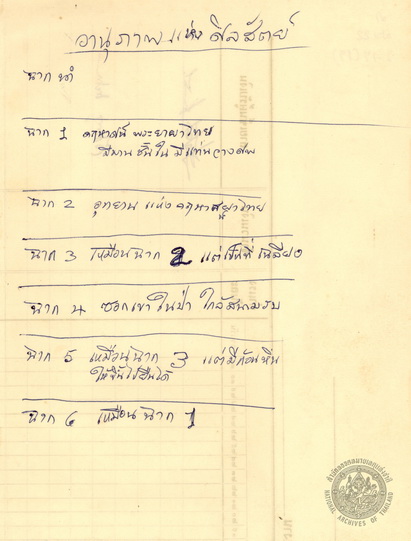 อานุภาพแห่งศีลสัตย์
ฉากนำ
ฉาก 1 คฤหาสน์ พระยาอาวิทย
วิมาน ชั้นใน มีแท่นวางศพ
ฉาก 2 อุทยาน แห่ง คฤหาสน์
ฉาก 3 เหมือนฉาก 2 แต่เป็นที่เฉลียง
ฉาก ๔ ซอกเขาในป่า ใกล้สนามรบ
ฉาก 5 เหมือนฉาก 3 แต่มีก้อนหิน
ให้ขึ้นไปยืนได้
ฉาก ๖ เหมือนฉาก 1
สำนักหอจดหมายเหตุแห่งชาติ
NATIONAL ARCHIVES OF THAILAND